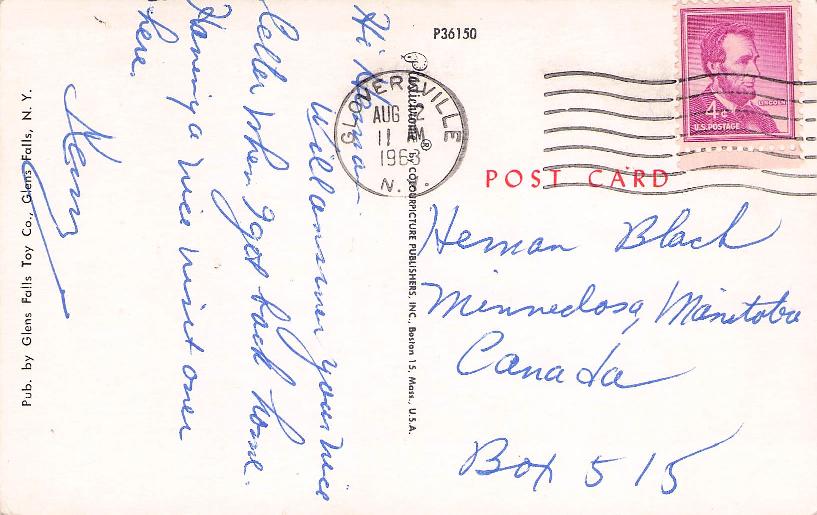 P36150
Hi Herman
Will answer your nice
letter when I get back home.
Having a nice visit over
here.
Pub. by Glens Falls Toy Co., Glens Falls, N. Y.
Plastichrome® by COLOURPICTURE PUBLISHERS, INC., Boston 15, Mass., U.S.A.
GLOVERSVILLE
AUG 2
11 AM
1963
N.
4¢
LINCOLN
U.S. POSTAGE
POST CARD
Herman Black
Minnedosa, Manitoba
Canada
Box 515